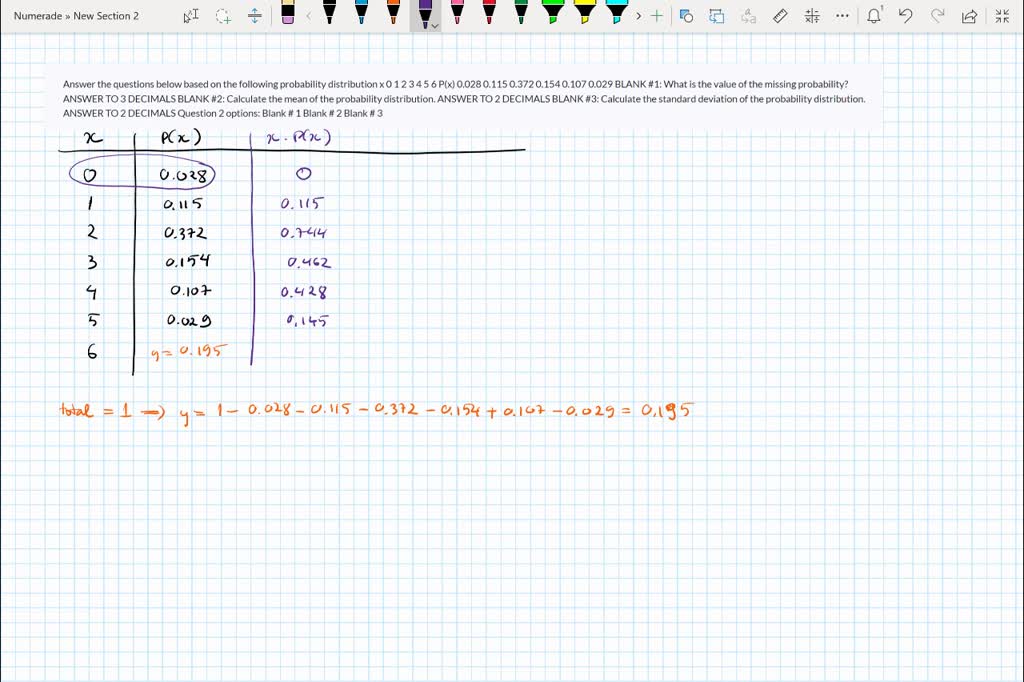 Numerade » New Section 2
Answer the questions below based on the following probability distribution x 0 1 2 3 4 5 6 P(x) 0.028 0.115 0.372 0.154 0.107 0.029 BLANK #1: What is the value of the missing probability?
ANSWER TO 3 DECIMALS BLANK #2: Calculate the mean of the probability distribution. ANSWER TO 2 DECIMALS BLANK #3: Calculate the standard deviation of the probability distribution.
ANSWER TO 2 DECIMALS Question 2 options: Blank # 1 Blank # 2 Blank # 3
x P(x) x . P(x)
0 0.028 0
1 0.115 0.115
2 0.372 0.744
3 0.154 0.462
4 0.107 0.428
5 0.029 0.145
6 y = 0.195
total = 1 => y = 1 - 0.028 - 0.115 - 0.372 - 0.154 + 0.107 - 0.029 = 0.195